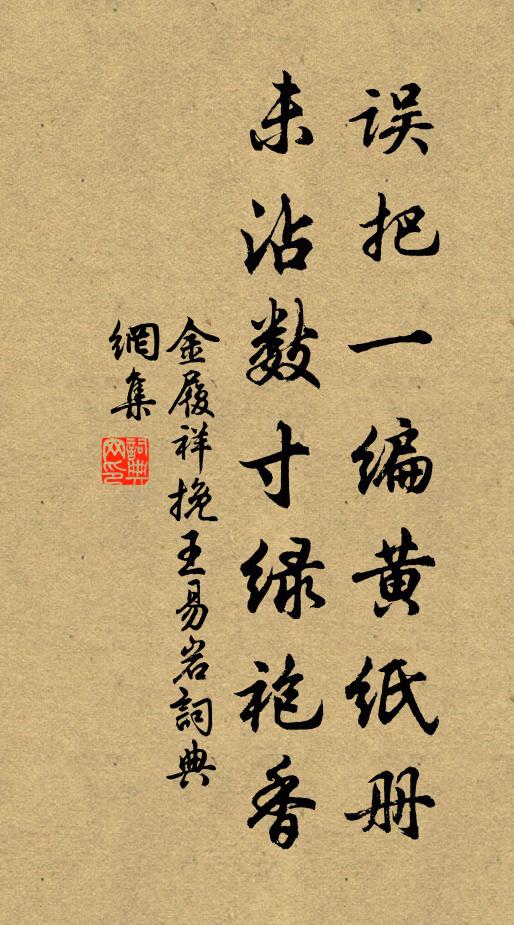 误把一编黄纸册
未沾数寸绿袍香
金履祥挽王易岩詞典
網集
詞典网印